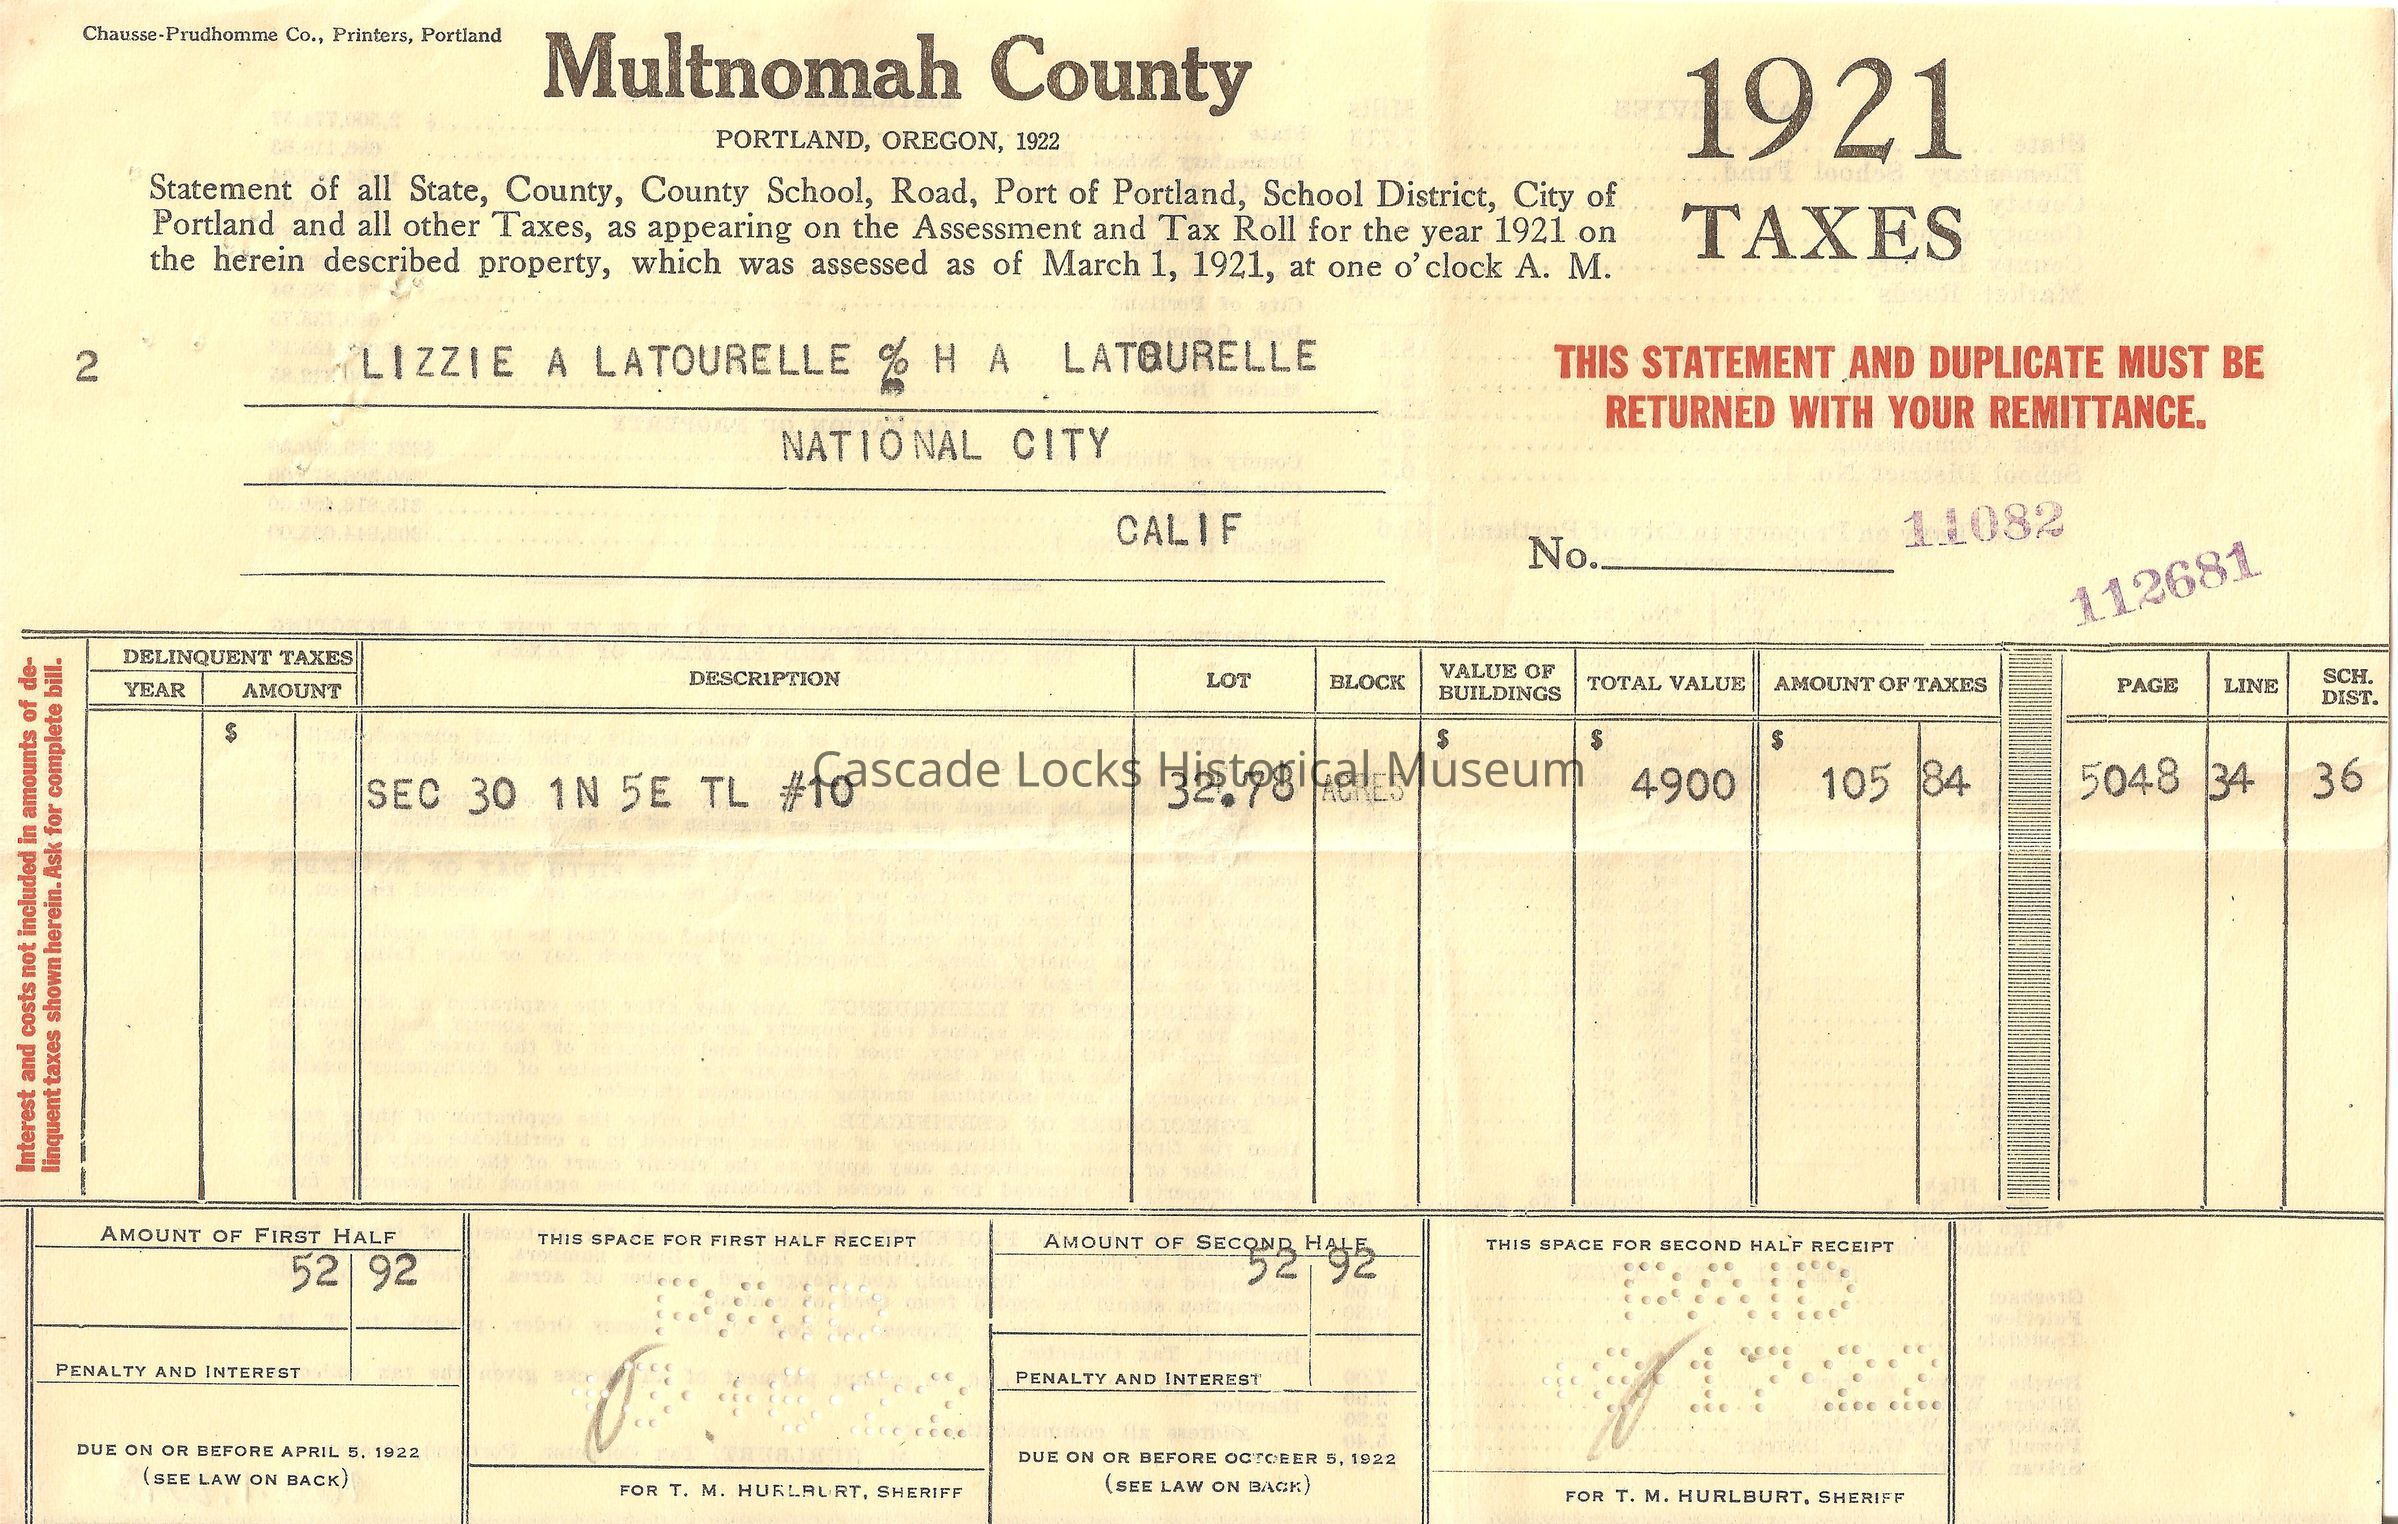 Chausse-Prudhomme Co., Printers, Portland
Multnomah County
PORTLAND, OREGON, 1922
1921
TAXES
Statement of all State, County, County School, Road, Port of Portland, School District, City of
Portland and all other Taxes, as appearing on the Assessment and Tax Roll for the year 1921 on
the herein described property, which was assessed as of March 1, 1921, at one o'clock A. M.
2 LIZZIE A LATOURELLE % H A LATOURELLE
NATIONAL CITY
CALIF
THIS STATEMENT AND DUPLICATE MUST BE
RETURNED WITH YOUR REMITTANCE.
No. 11082
112681
Interest and costs not included in amounts of de-
linquent taxes shown herein. Ask for complete bill.
DELINQUENT TAXES
YEAR AMOUNT DESCRIPTION LOT BLOCK VALUE OF BUILDINGS TOTAL VALUE AMOUNT OF TAXES PAGE LINE SCH. DIST.
$ $ $ $
Cascade Locks Historical Museum
SEC 30 1N 5E TL #10 32.78 ACRES 4900 105 84 5048 34 36
AMOUNT OF FIRST HALF
52 92
PENALTY AND INTEREST
DUE ON OR BEFORE APRIL 5, 1922
(SEE LAW ON BACK)
THIS SPACE FOR FIRST HALF RECEIPT
PAID
FOR T. M. HURLBURT, SHERIFF
AMOUNT OF SECOND HALF
52 92
PENALTY AND INTEREST
DUE ON OR BEFORE OCTOBER 5, 1922
(SEE LAW ON BACK)
THIS SPACE FOR SECOND HALF RECEIPT
PAID
17 22
FOR T. M. HURLBURT, SHERIFF